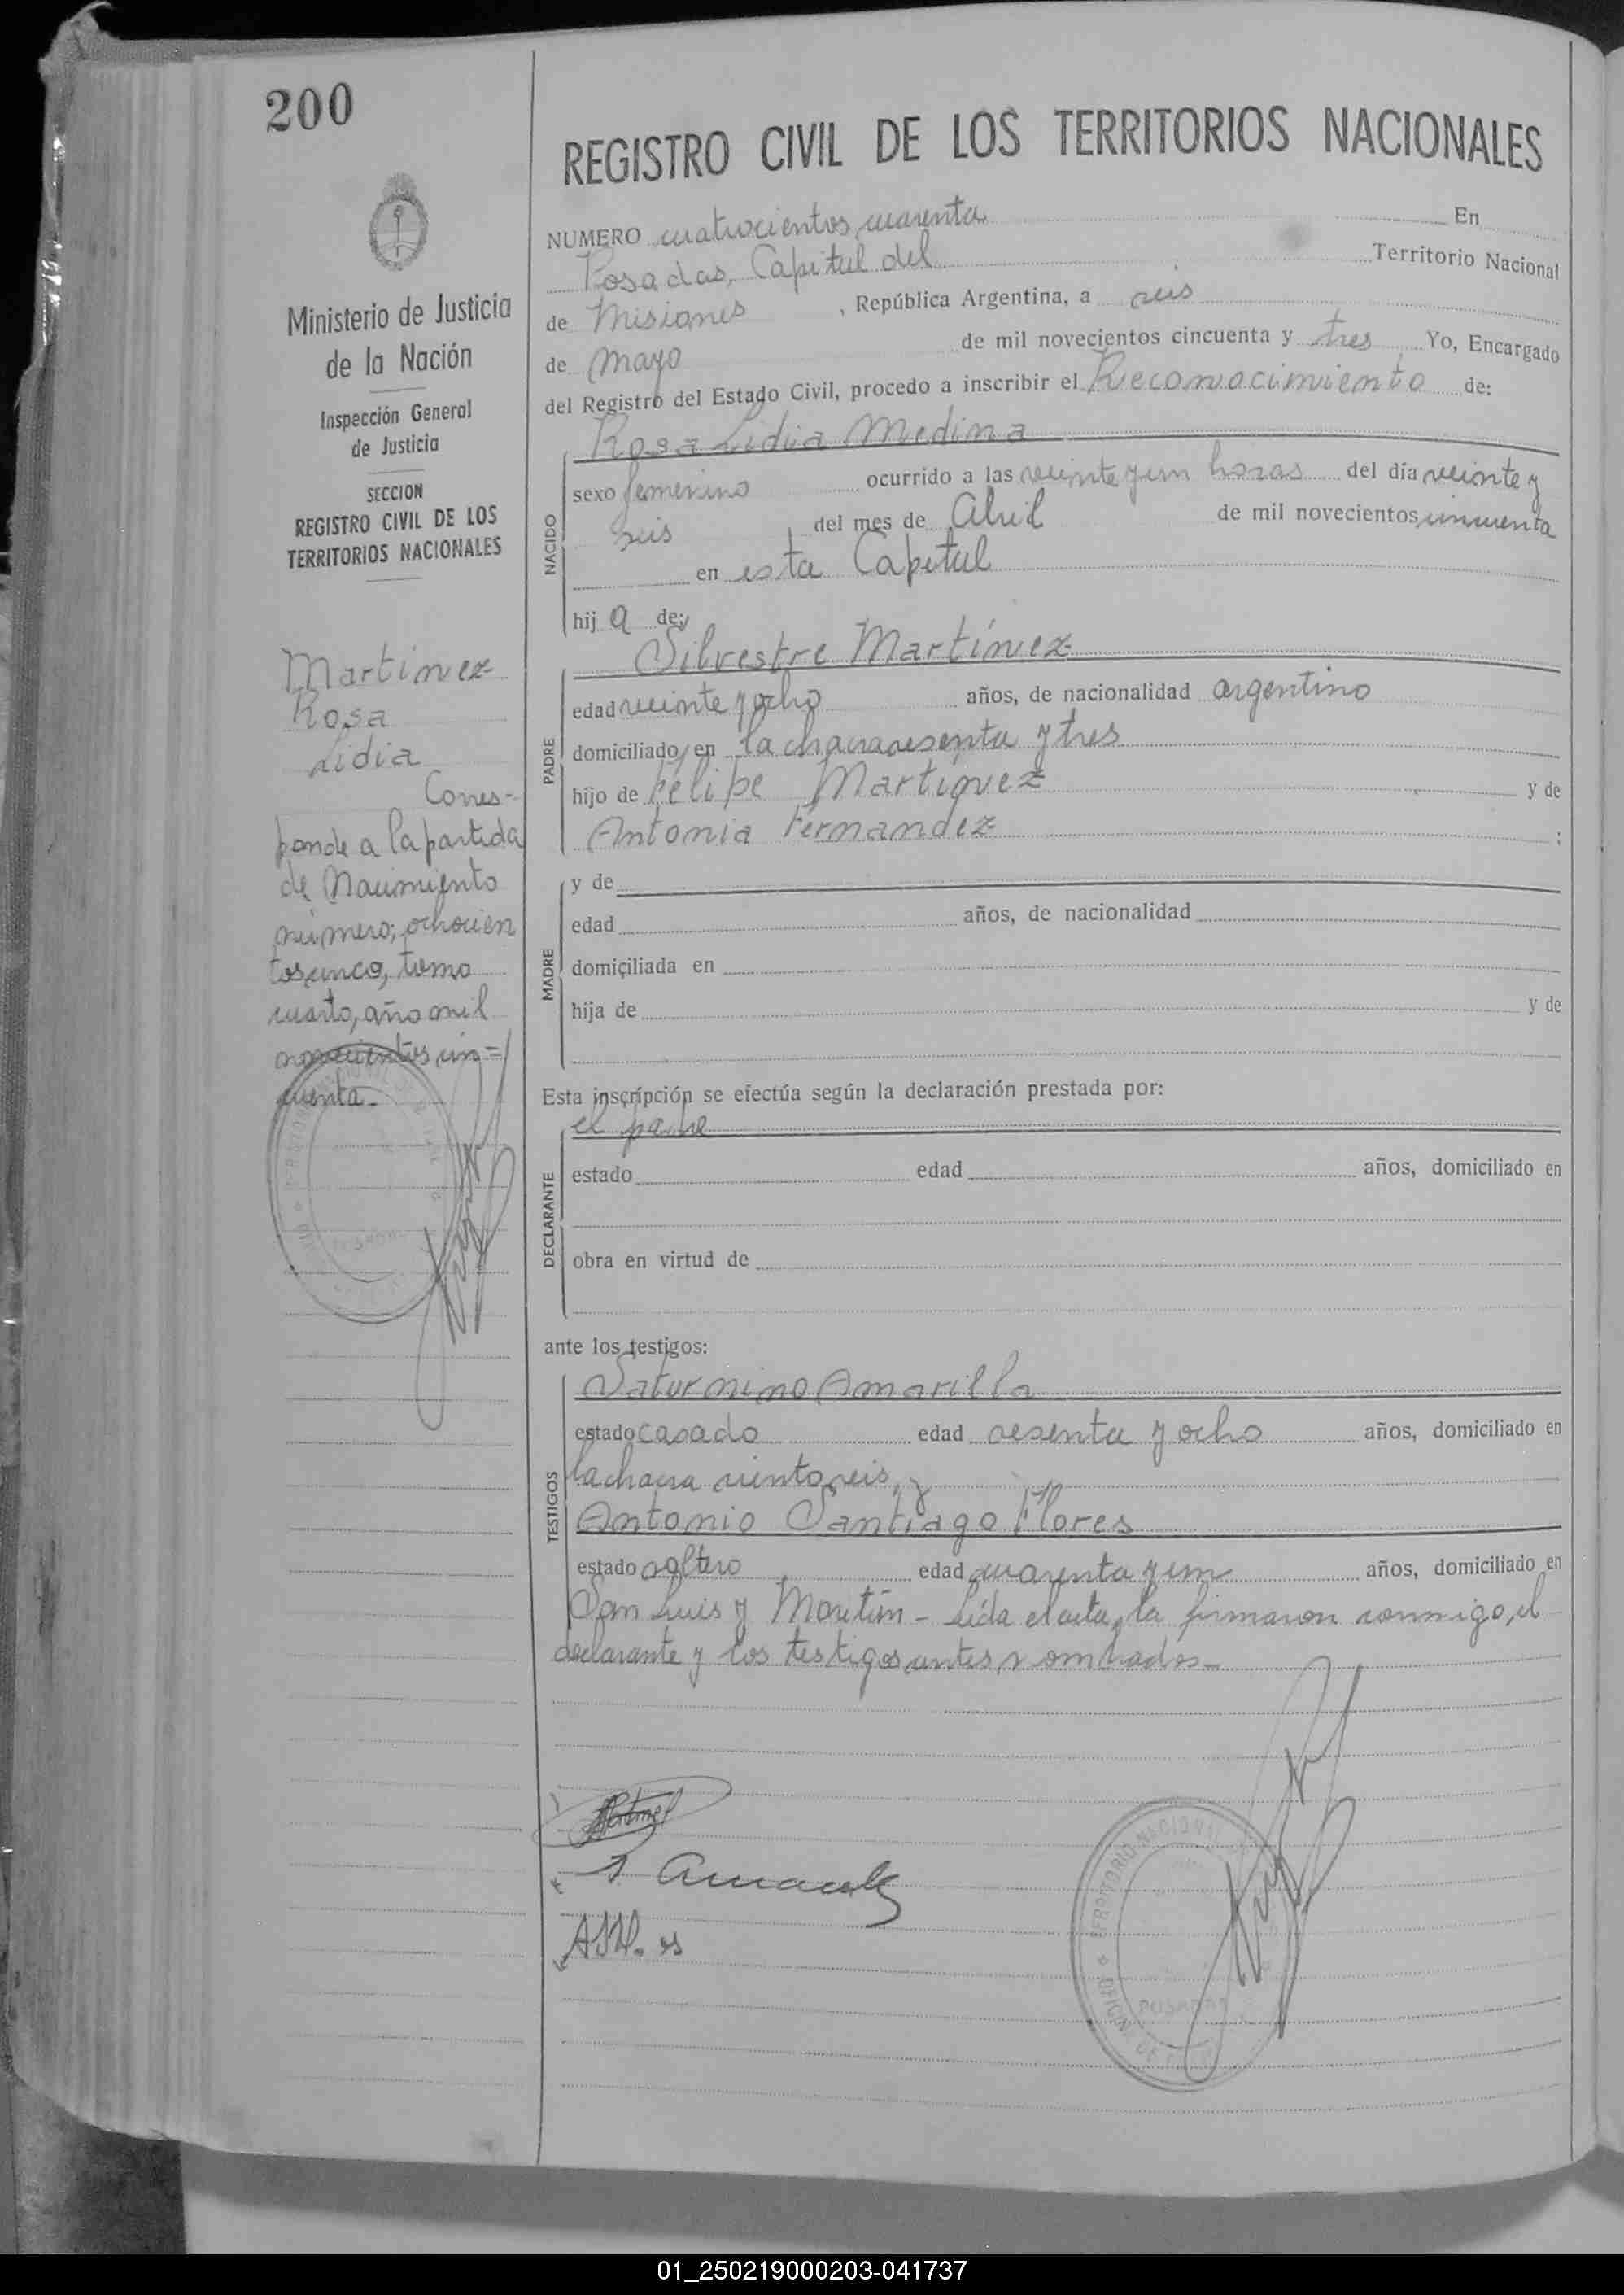 200
REGISTRO CIVIL DE LOS TERRITORIOS NACIONALES
NUMERO cuatrocientos cuarenta En
Posadas, Capital del Territorio Nacional
de Misiones, República Argentina, a seis
de Mayo de mil novecientos cincuenta y tres Yo, Encargado
del Registro del Estado Civil, procedo a inscribir el Reconocimiento de:
Rosa Lidia Medina
NACIDO
sexo femenino ocurrido a las veinte y un horas del día veinte y
seis del mes de Abril de mil novecientos cincuenta
en esta Capital
hij a de:
Silvestre Martínez
PADRE
edad veinte y ocho años, de nacionalidad argentino
domiciliado en la chacra sesenta y tres
hijo de Felipe Martínez y de
Antonia Fernandez ;
MADRE
y de
edad años, de nacionalidad
domiciliada en
hija de y de
Esta inscripción se efectúa según la declaración prestada por:
el padre
DECLARANTE
estado edad años, domiciliado en
obra en virtud de
ante los testigos:
Saturnino Amarilla
TESTIGOS
estado casado edad sesenta y ocho años, domiciliado en
la chacra ciento seis, y
Antonio Santiago Flores
estado soltero edad cuarenta y un años, domiciliado en
San Luis y Martín - Leída el acta, la firmaron conmigo, el
declarante y los testigos antes nombrados-
Ministerio de Justicia
de la Nación
Inspección General
de Justicia
SECCION
REGISTRO CIVIL DE LOS
TERRITORIOS NACIONALES
Martinez
Rosa
Lidia
Corres-
ponde a la partida
de Nacimiento
número; ochocien
tos cinco, tomo
cuarto, año mil
novecientos cin=
cuenta-
POSADAS
01_250219000203-041737